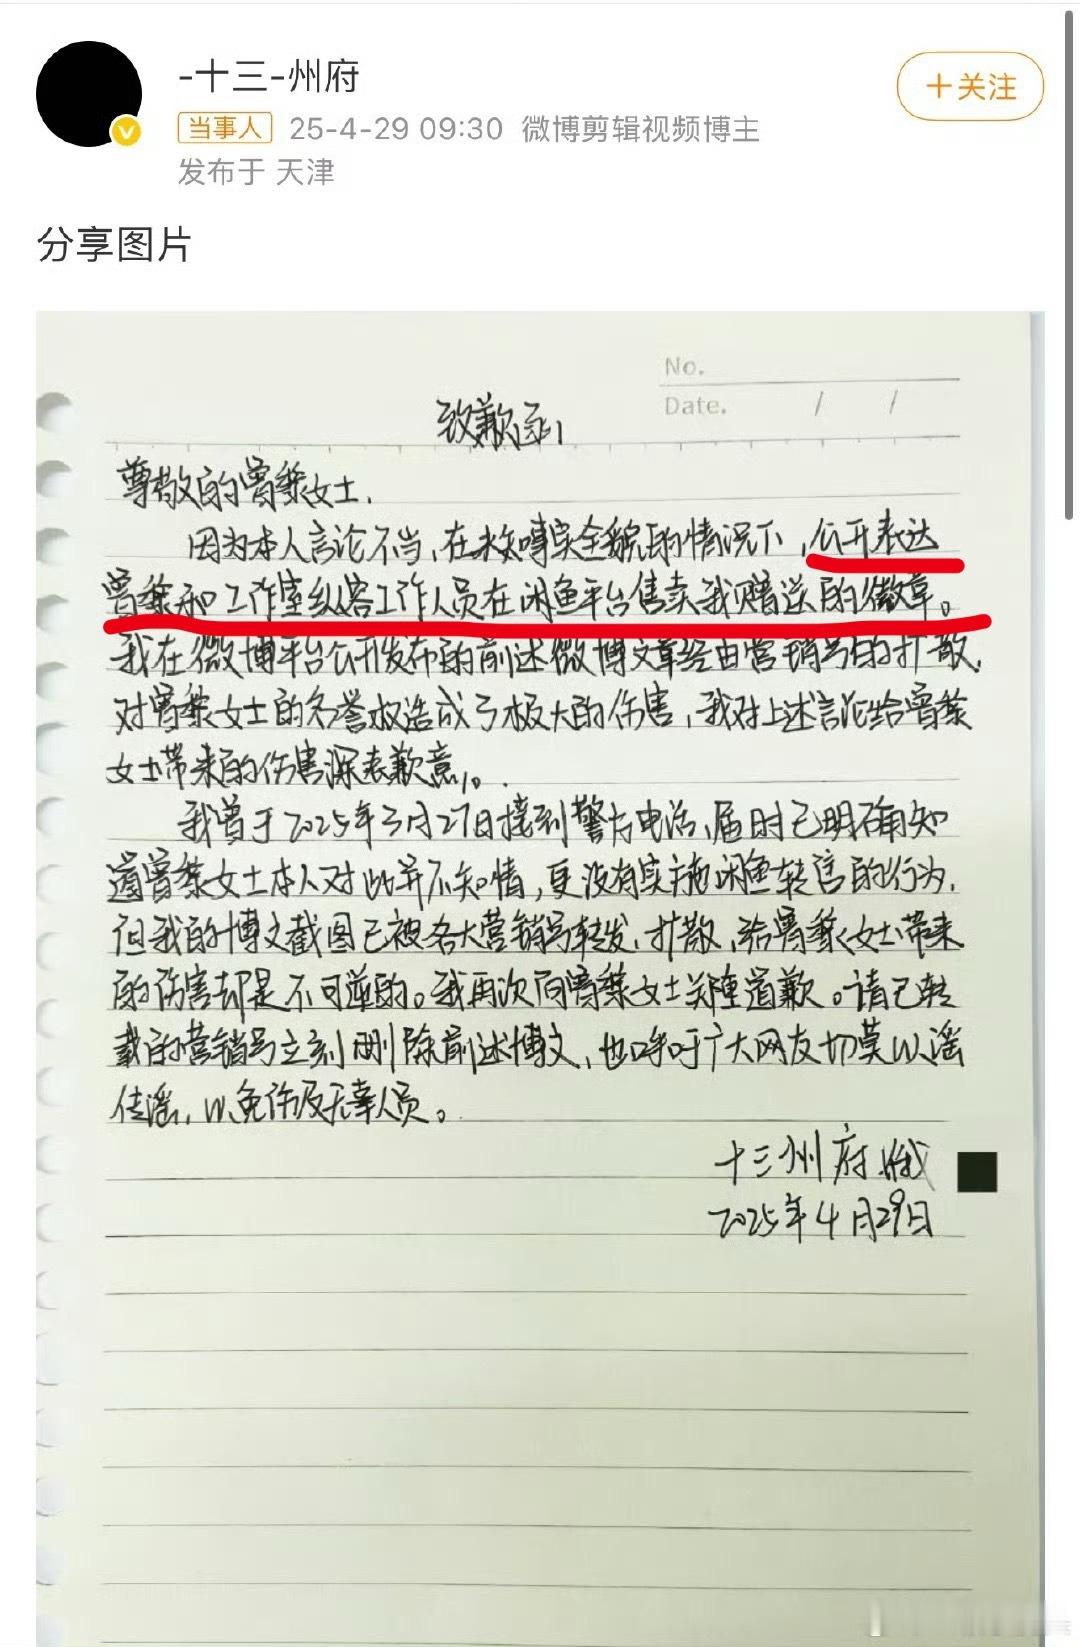 -十三-州府
+关注
当事人 25-4-29 09:30 微博剪辑视频博主
发布于 天津
分享图片
No.
Date. / /
致歉函
尊敬的曾黎女士，
因为本人言论不当，在未知事实全貌的情况下，公开表达
曾黎和工作室纵容工作人员在闲鱼平台售卖我赠送的徽章。
我在微博平台公开发布的前述微博文章经由营销号的扩散，
对曾黎女士的名誉权造成了极大的伤害，我对上述言论给曾黎
女士带来的伤害深表歉意。
我曾于2025年3月27日接到警方电话，届时已明确知
道曾黎女士本人对此并不知情，更没有实施闲鱼转售的行为，
但我的博文截图已被各大营销号转发，扩散，给曾黎女士带来
的伤害却是不可逆的。我再次向曾黎女士郑重道歉。请已转
载的营销号立刻删除前述博文，也呼吁广大网友切莫以谣
传谣，以免伤及无辜人员。
十三州府
2025年4月29日